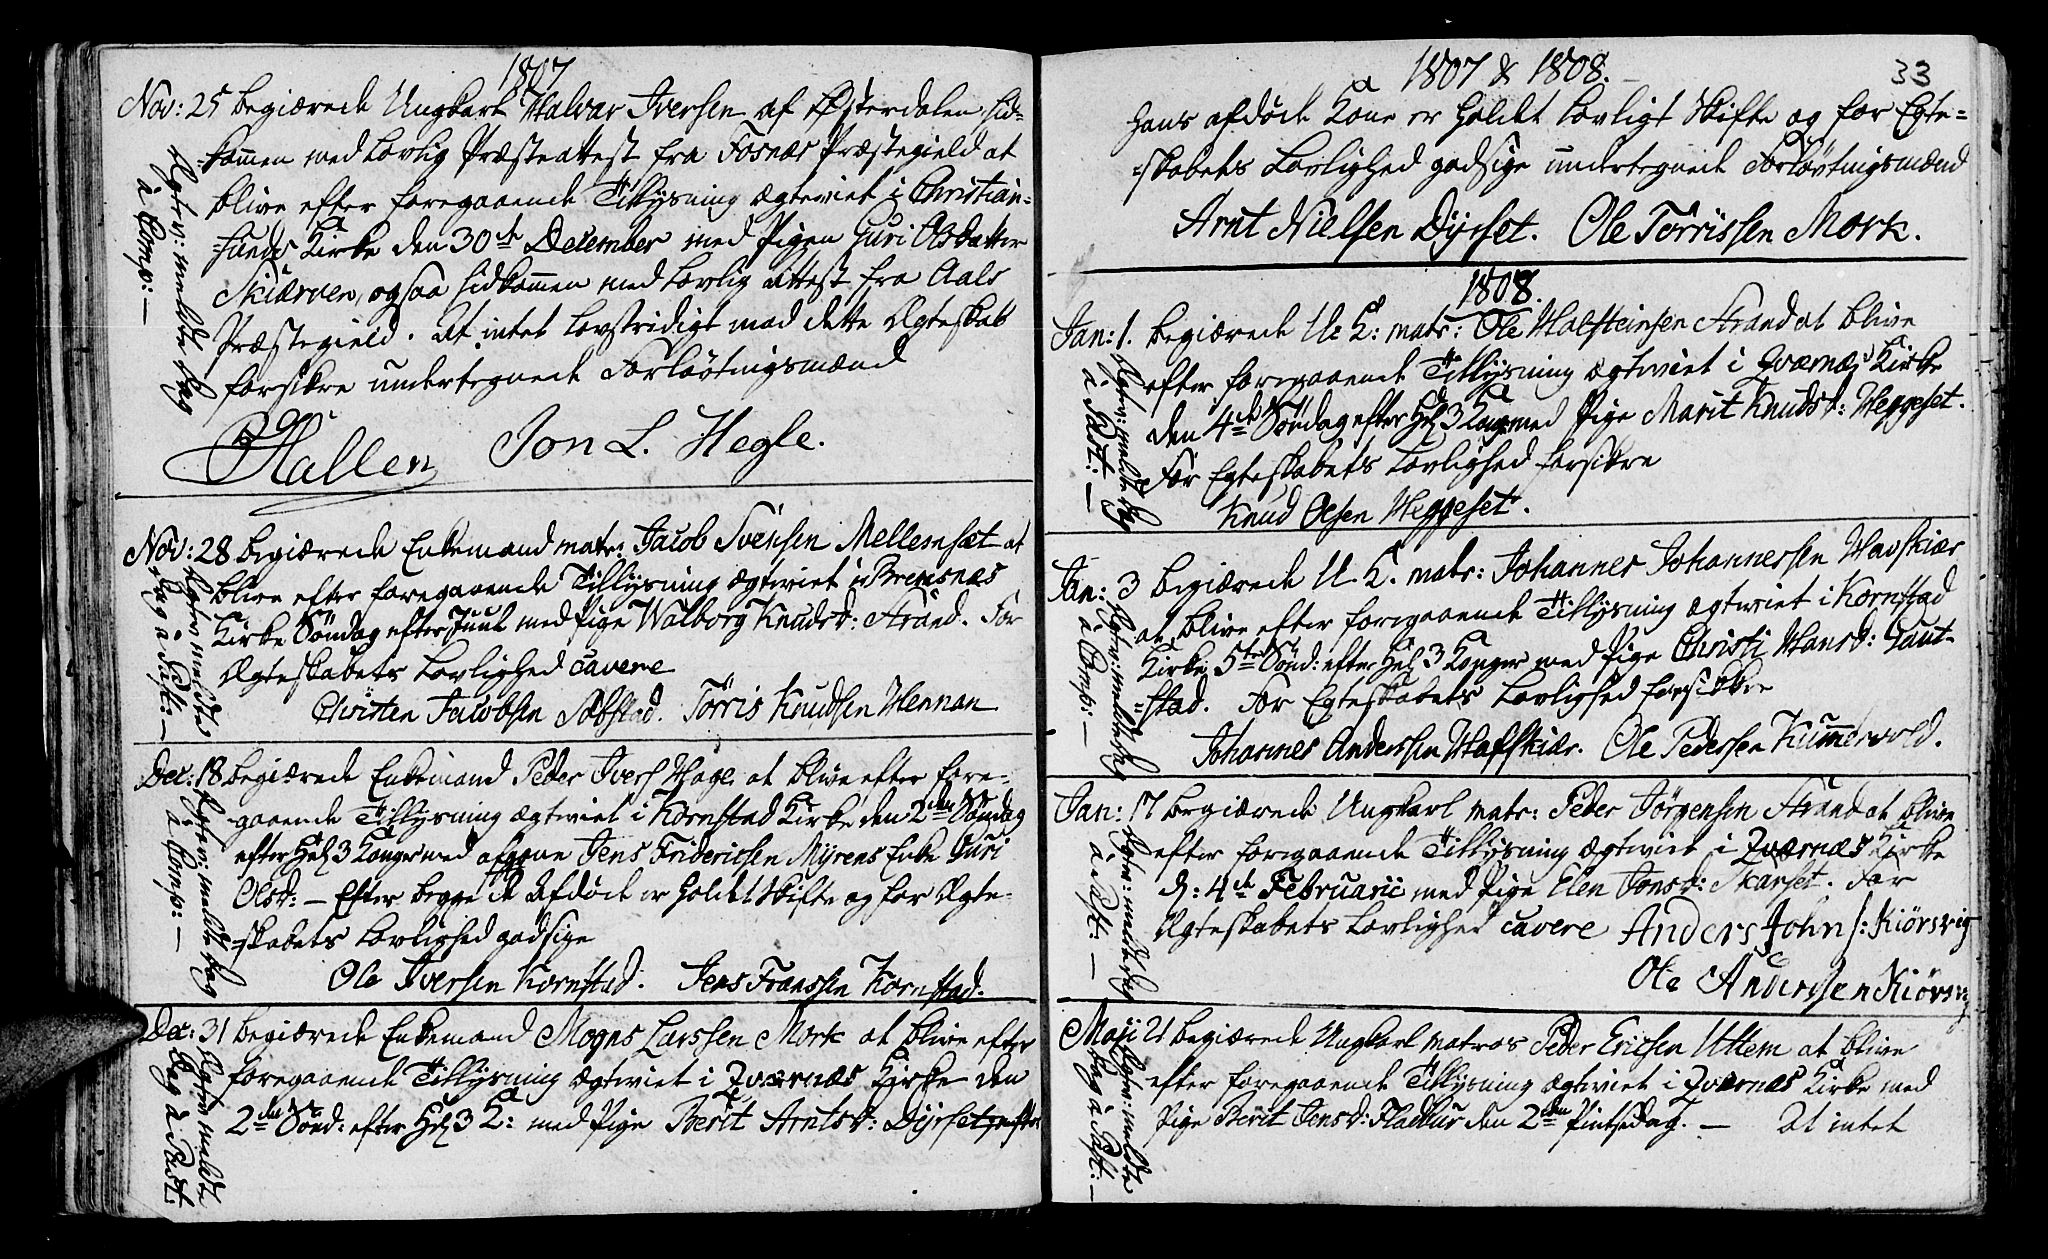 1807
Nov: 25 begiærede Ungkarl Halvar Iversen af Østerdalen hid-
kommen med lovlig Præsteattest fra Fosnæs Præstegield at
blive efter foregaaende Tillysning ægteviet i Christian-
sunds Kirke den 30te December med Pigen Guri Olsdatter
Skiærven, ogsaa hidkommen med lovlig attest fra Aals
Præstegield. At intet lovstridigt mod dette Ægteskab
forsikre undertegnede Forlovningsmænd
Hallen Jon L. Hegle.
Ægtev: meldte sig
à Comp: —
Nov: 28 begiærede Enkemand matr: Jacob Svensen Mellemsæt at
blive efter foregaaende Tillysning ægteviet i Bremsnæs
Kirke Søndag efter Juul med Pige Walborg Knudsd: Strand. For
Ægteskabets Lovlighed cavere
Christen Jacobsen Sæbstad. Törris Knudsen Hennan
Ægtev: meldte
sig à Past: —
Dec: 18 begiærede Enkemand Peder Ivers Hage at blive efter fore-
gaaende Tillysning ægteviet i Kornstad Kirke den 2den Søndag
efter Hel 3 Konger med afgangne Jens Fridericsen Myrens Enke Guri
Olsd: — Efter begge de Afdøde er holdt Skifte og for Ægte-
skabets Lovlighed godsige
Ole Iversen Kornstad. Jens Franssen Kornstad.
Ægtev: meldte sig
à Comp: —
Dec: 31 begiærede Enkemand Mogns Larssen Mork at blive efter
foregaaende Tillysning ægteviet i Qværnæs Kirke den
2den Sønd: efter Hel 3 K: med Pige Berit Arntsd: Dyrset, efter
Ægtev: meldte
sig à Past:
1807 & 1808. 33
hans afdøde Kone er holdt lovligt Skifte og for Egte-
skabets Lovlighed godsige undertegnede Forlovningsmænd
Arnt Nielsen Dyrset. Ole Törrissen Mork.
1808.
Jan: 1. begiærede U. K: matr: Ole Halsteinsen Strand at blive
efter foregaaende Tillysning ægteviet i Qværnæs Kirke
den 4de Søndag efter Hel 3 Kong: med Pige Marit Knudsd: Heggeset.
For Egteskabets Lovlighed forsikre
Knud Olsen Heggeset.
Ægtev: meldte sig
à Past: —
Jan: 3 begiærede U. K. matr: Johannes Johannessen Havskiær
at blive efter foregaaende Tillysning ægteviet i Kornstad
Kirke 5te Sønd: efter Hel 3 Konger med Pige Christi Hansd: Gaut-
stad. For Egteskabets Lovlighed forsikkre
Johannes Anderssen Hafskiær. Ole Pedersen Kummervold.
Ægtev: meldte sig
à Comp: —
Jan: 17 begiærede Ungkarl matr: Peder Jörgensen Strand at blive
efter foregaaende Tillysning ægteviet i Qværnæs Kirke
d: 4de Februarii med Pige Elen Jonsd: Skarset. For
Ægteskabets Lovlighed cavere Anders John s: Kiörsvig
Ole Anderssen Kiörsvig
Ægtev: meldte sig
à Past: —
Maji 21 begiærede Ungkarl matros Peder Ericsen Uttem at blive
efter foregaaende Tillysning ægteviet i Qværnæs Kirke med
Pige Berit Jensd: Fladsur den 2den Pintsedag. — At intet
Ægtev: meldte
sig à Past: —